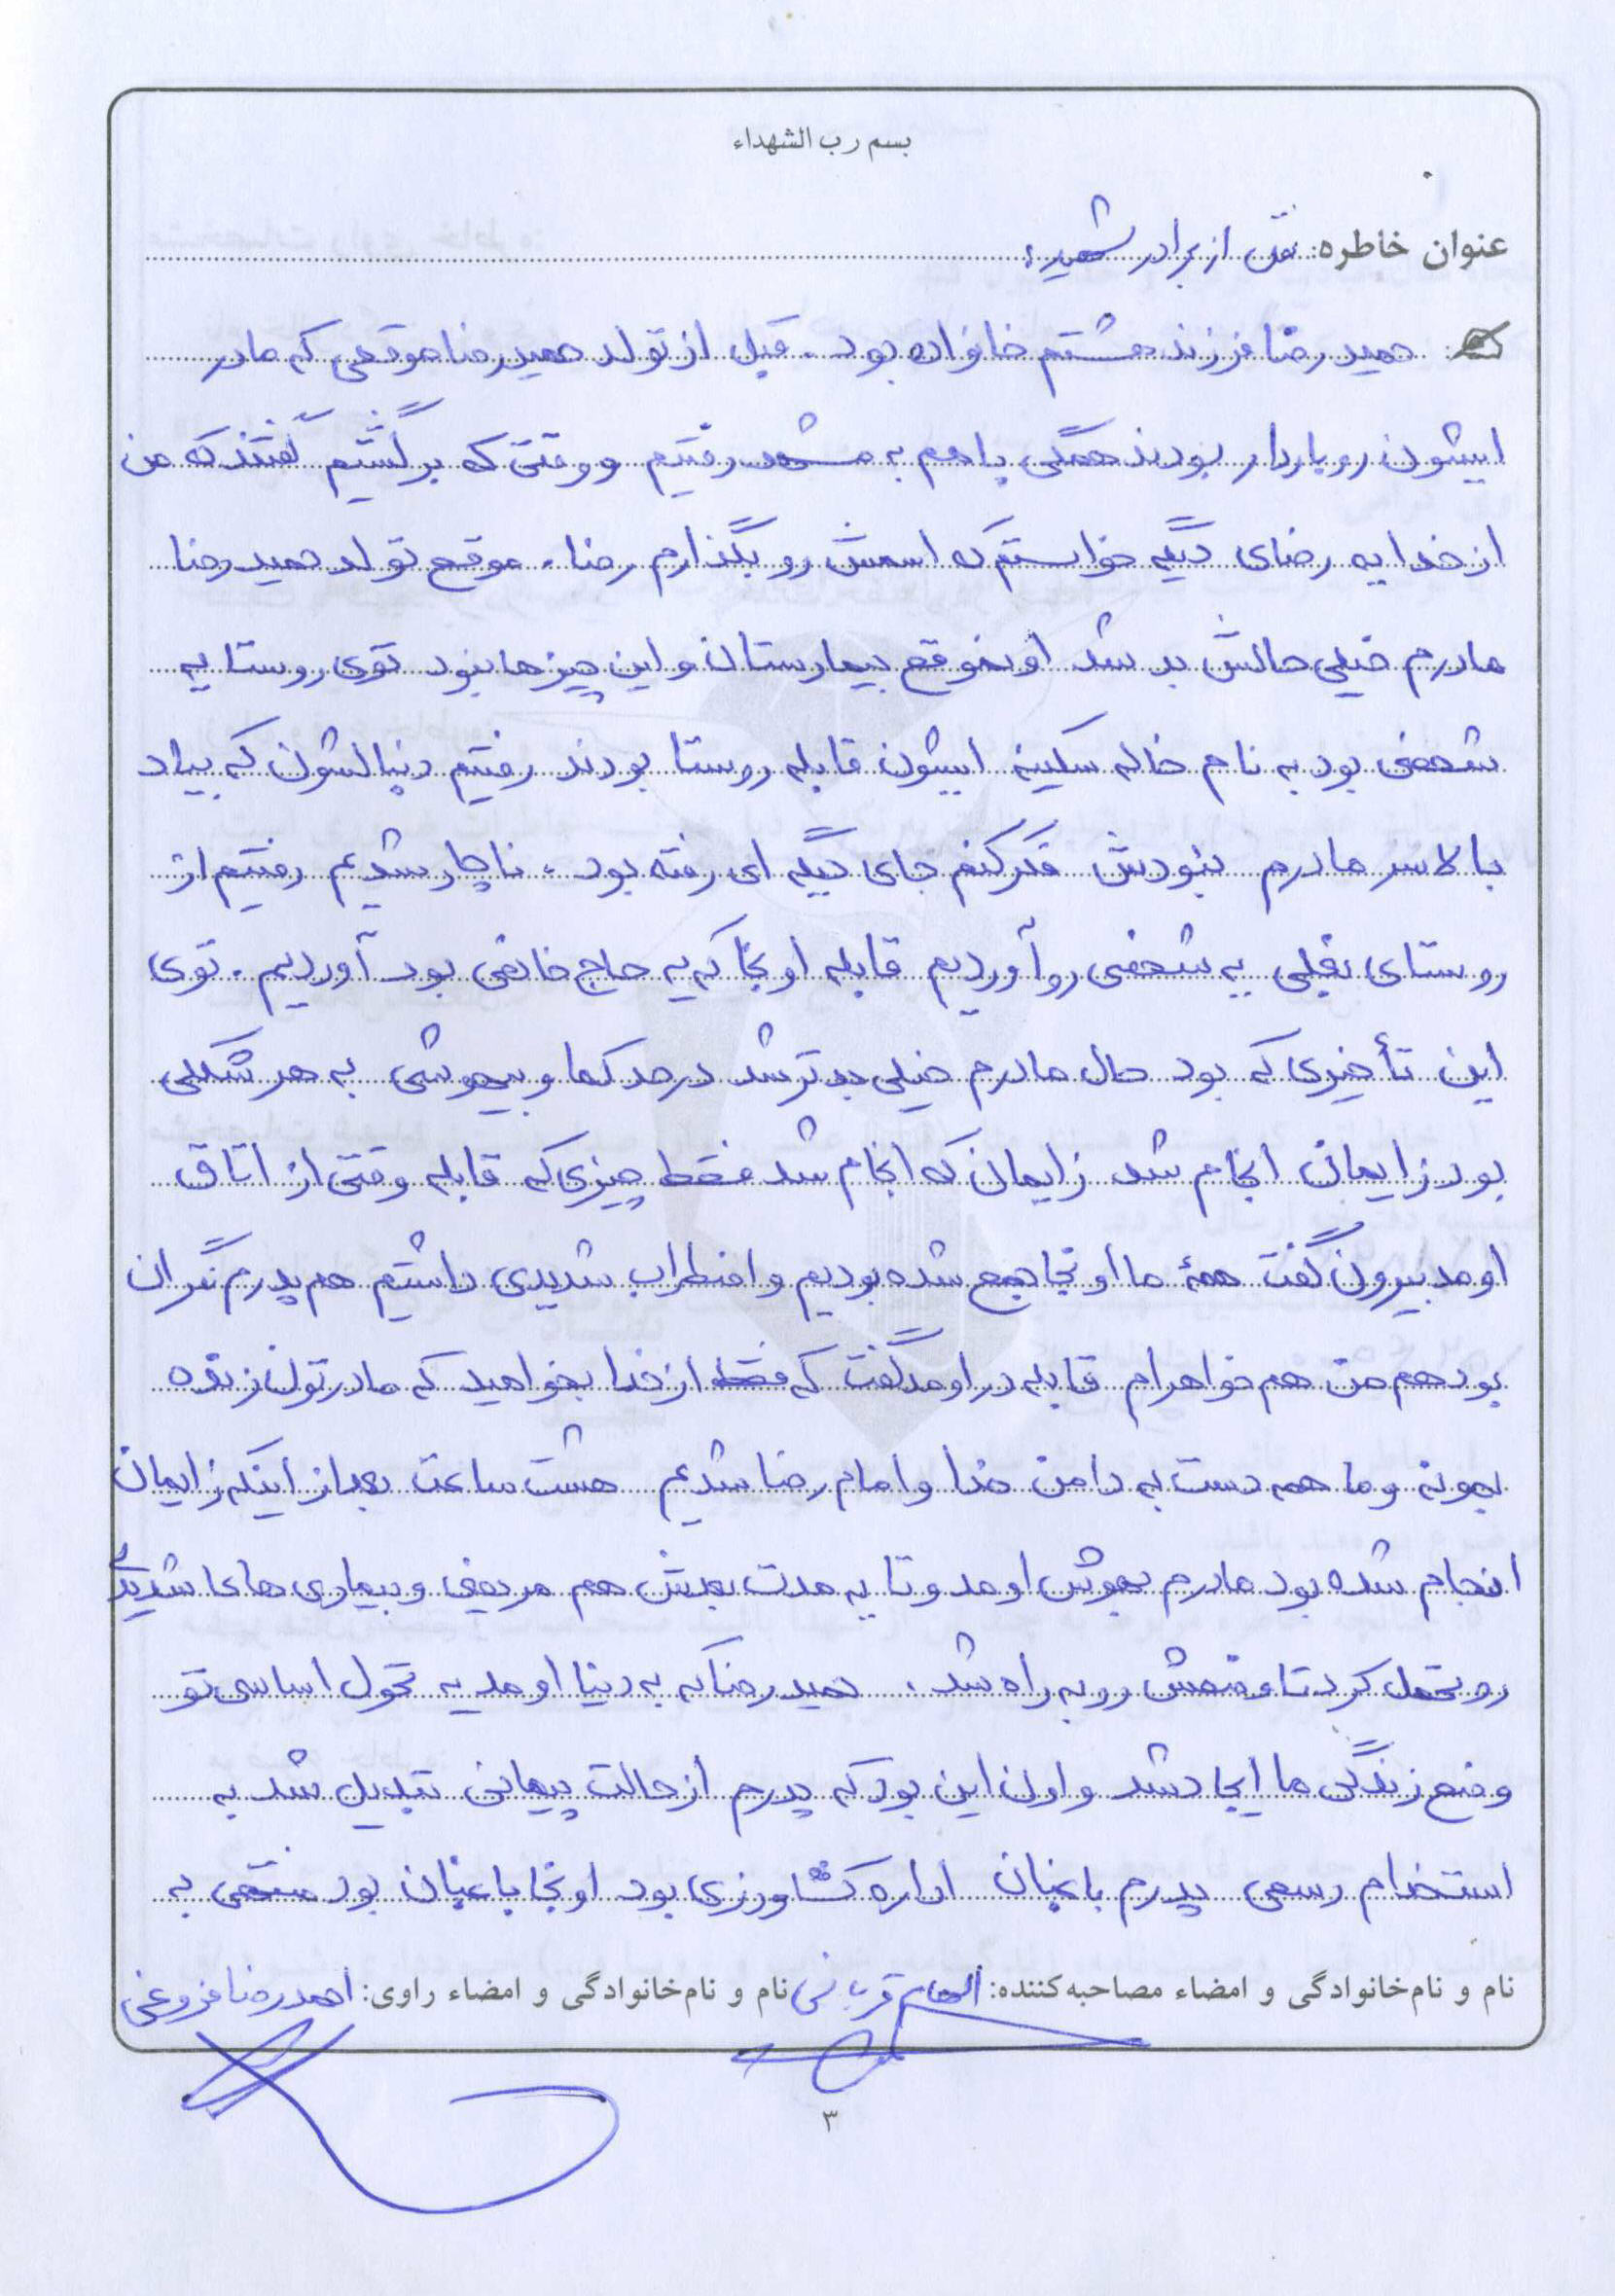 بسم رب الشهداء
عنوان خاطره: نقل از برادر شهید:
حمید رضا فرزند هشتم خانواده بود. قبل از تولد حمیدرضا موقعی که مادر
ایشون رو باردار بودند همگی باهم به مشهد رفتیم و وقتی که برگشتیم گفتند که من
از خدا یه رضای دیگه خواستم که اسمش رو بگذارم رضا. موقع تولد حمید رضا
مادرم خیلی حالش بد شد اونموقع بیمارستان و این چیزها نبود توی روستا یه
شخصی بود به نام خاله سکینه ایشون قابله روستا بودند رفتیم دنبالشون که بیاد
بالا سر مادرم نبودش فکر کنم جای دیگه ای رفته بود، ناچار شدیم رفتیم از
روستای بغلی یه شخصی رو آوردیم قابله اونجا که یه حاج خانمی بود آوردیم. توی
این تأخیری که بود حال مادرم خیلی بدتر شد در حد کما و بیهوشی به هر شکلی
بود زایمان انجام شد زایمان که انجام شد فقط چیزی که قابله وقتی از اتاق
اومد بیرون گفت همهٔ ما اونجا جمع شده بودیم و اضطراب شدیدی داشتیم هم پدرم نگران
بود هم من هم خواهرام قابله در اومد گفت که فقط از خدا بخواهید که مادرتون زنده
بمونه و ما همه دست به دامن خدا و امام رضا شدیم هشت ساعت بعد از اینکه زایمان
انجام شده بود مادرم بهوش اومد و تا یه مدت بعدش هم مریضی و بیماری های شدیدی
رو تحمل کرد تا وضعش رو به راه شد. حمید رضا که به دنیا اومد یه تحول اساسی تو
وضع زندگی ما ایجاد شد و اون این بود که پدرم از حالت پیمانی تبدیل شد به
استخدام رسمی پدرم باغبان اداره کشاورزی بود اونجا باغبان بود منتهی به
نام و نام‌خانوادگی و امضاء مصاحبه‌کننده: الهام قربانی نام و نام‌خانوادگی و امضاء راوی: احمدرضا فروغی
۳